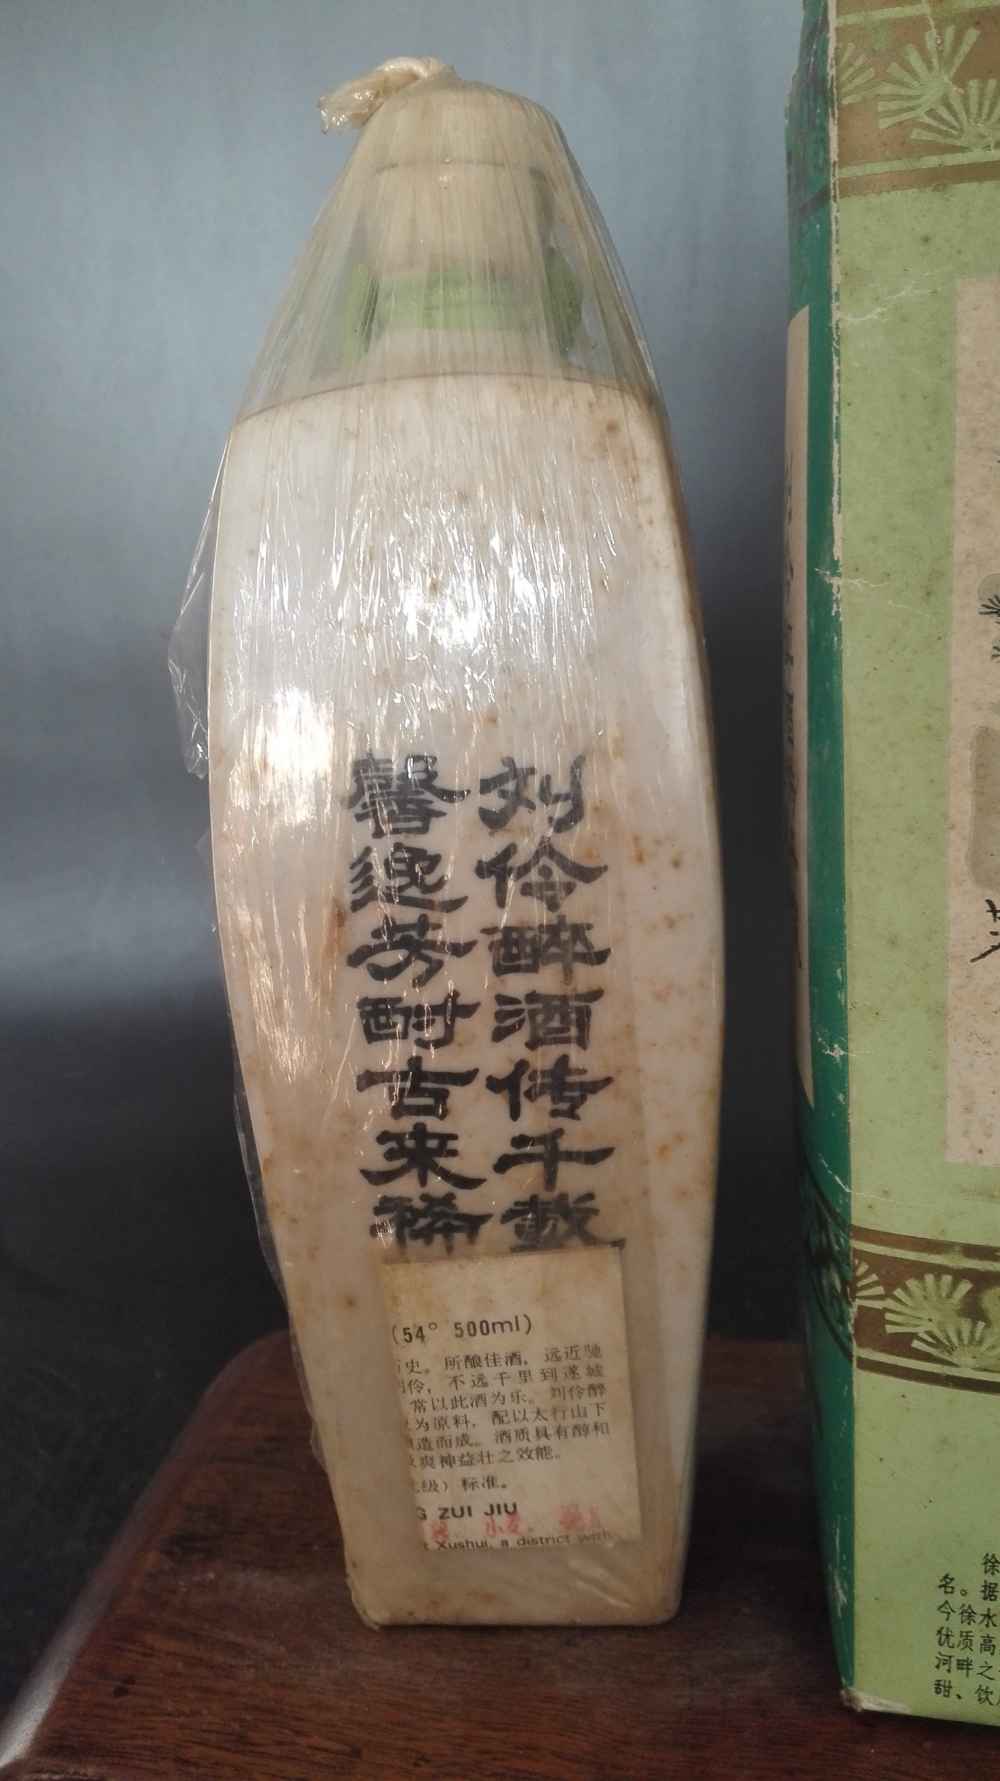 刘伶醉酒传千载
馨逸芳酎古来稀
(54° 500ml)
史。所酿佳酒，远近驰
伶，不远千里到遂城
常以此酒为乐。刘伶醉
为原料，配以太行山下
造而成。酒质具有醇和
爽神益壮之效能。
级）标准。
G ZUI JIU
Xushui, a district with
徐
名。据
今徐水
优质高
河畔之
甜、饮